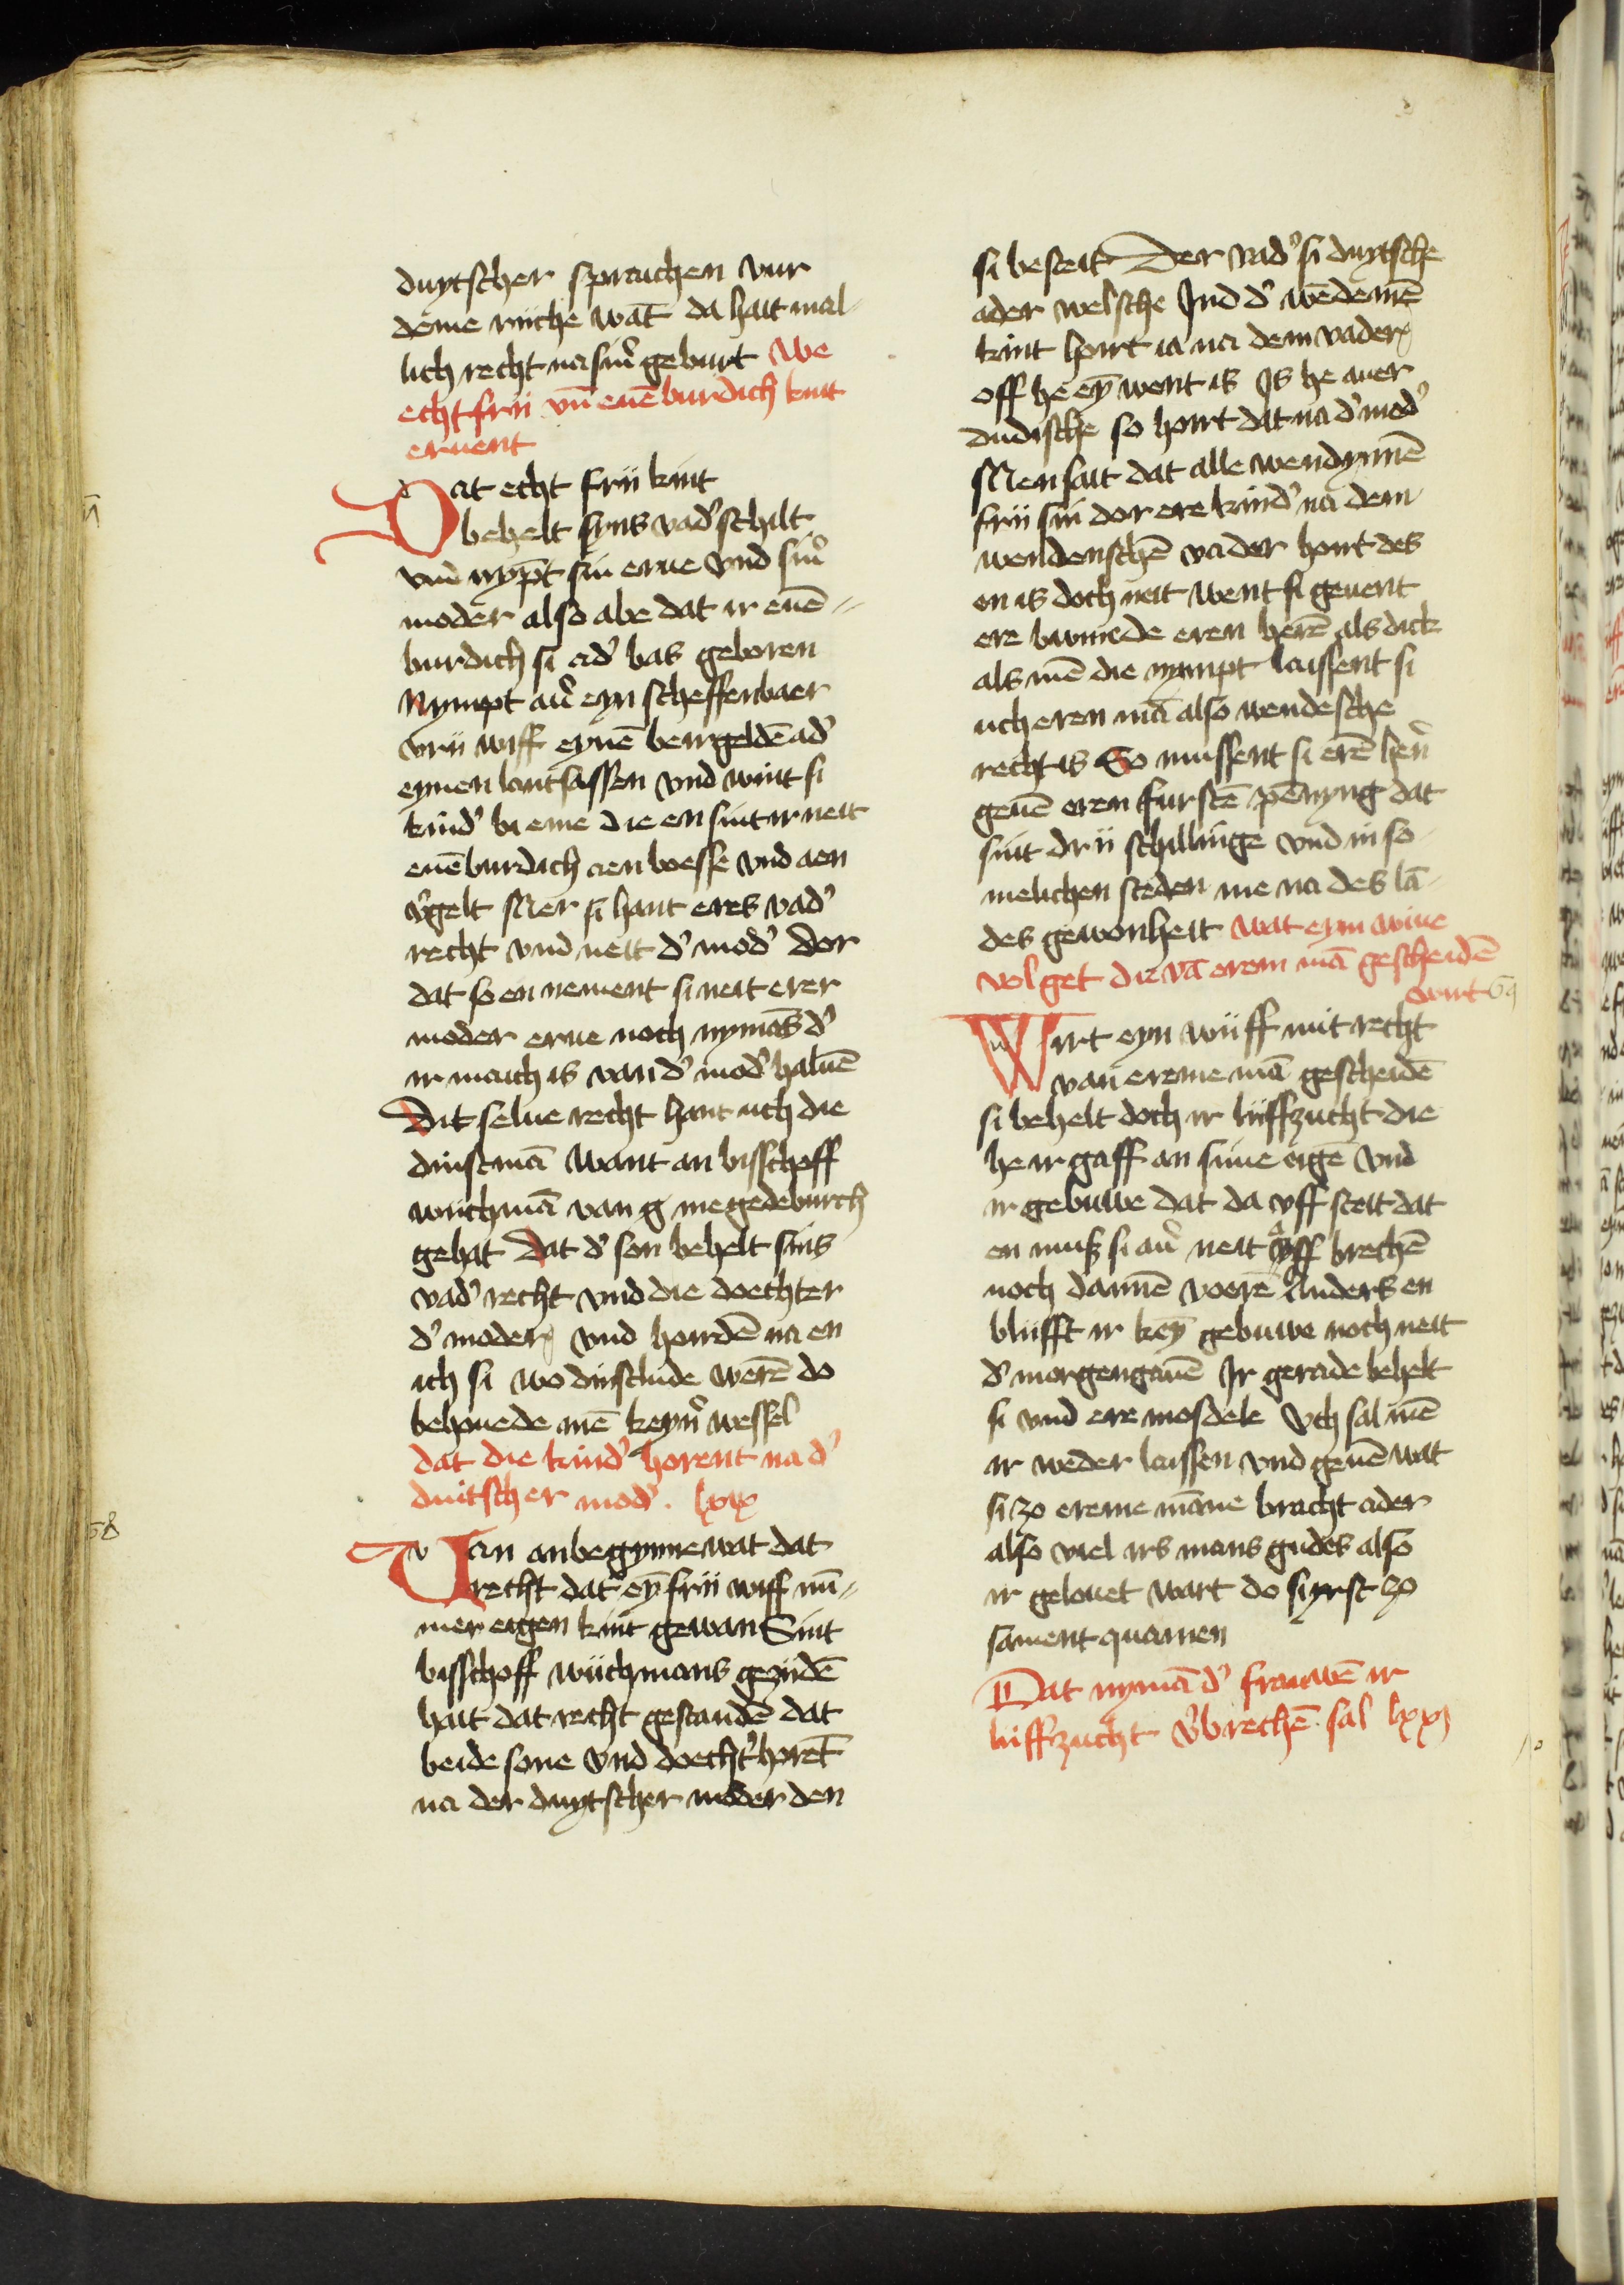 duytscher sprauchen vur
deme riiche wat̄ da hait mal-
lich recht na sinr̉ geburt We
echt frii vn̄ euēburdich kint
eruent
Dat echt frii kint
behelt syns vad̉ schilt
vnd nyp̄t sin erue vnd sinr̉
moder also abe dat ir euē-
burdich si ad̉ bas geboren
Nympt aủ eyn scheffenbaer
vrii wiff eynē beirgeldē ad̉
eynen lantsassen vnd wint si
kind̉ bi eme die en sint ir neit
euēburdich aen boesse vnd aen
w̉gelt Mer si hant eres vad̉
recht vnd neit d̉ mod̉ Dor
dat so en nement si neit erer
moder erue noch nymās d̉
ir maich is van d̉ mod̉ haluē
Dit selue recht hant uch die
dinstmā Want an bisschoff
wiichmā van g megedeburch
gehat Dat d̉ son behelt sins
vad̉ recht vnd die doechter
d̉ moder vnd hordē na en
ich si wo dinstlude werē do
behouede mē keynr̉ wessel
dat die kind̉ horent na d̉
duitscher mod̉. lxix
Van anbegynne wat dat
recht dat eȳ frii wiff nū-
mer eigen kint gewan Sint
bisschoff wiichmans geziidē
hait dat recht gestandē dat
beide sone vnd doecht̉ horēt
na der duytscher moder den
58
si besteit Der vad̉ si duytsche
ader welsche Ind d̉ wēdemē
kint hort ia na dem vader
off he eȳ went is Is he auer
dudische so hort dat na d̉ mod̉
Men sait dat alle wendynnē
frii sin dor ere kind̉ na dem
wendenschē vader hort des
en is doch neit Went si geuent
ere bumede eren herē als dick
als mē die nympt laissent si
uch eren mā also wendesche
recht is So mussent si erē hen̉
geuē eren fursten pēnyng dat
sint drii schillinge vnd in so-
melichen steden me na des lā-
des gewonheit wat eym wiue
volget die vā erem mā gescheidē
wirt 59
Wirt eyn wiiff mit recht
van ereme mā gescheidē
si behelt doch ir liiffzucht die
he ir gaff an sime eigē vnd
ir gebuwe dat da vff steit dat
en muß si aủ neit vff brechē
noch dannē voerē Anders en
bliifft ir keȳ gebuwe noch neit
d̉ morgengauē Ir gerade behelt
si vnd ere mosdele Vch sal mē
ir weder laissen vnd geuē wat
si zo ereme māne bracht ader
also viel irs mans gudes also
ir gelouet wart do si yrst zo
sament quamen
Dat nymā d̉ frauwē ir
liiffzucht v̉brechē sal lxxj